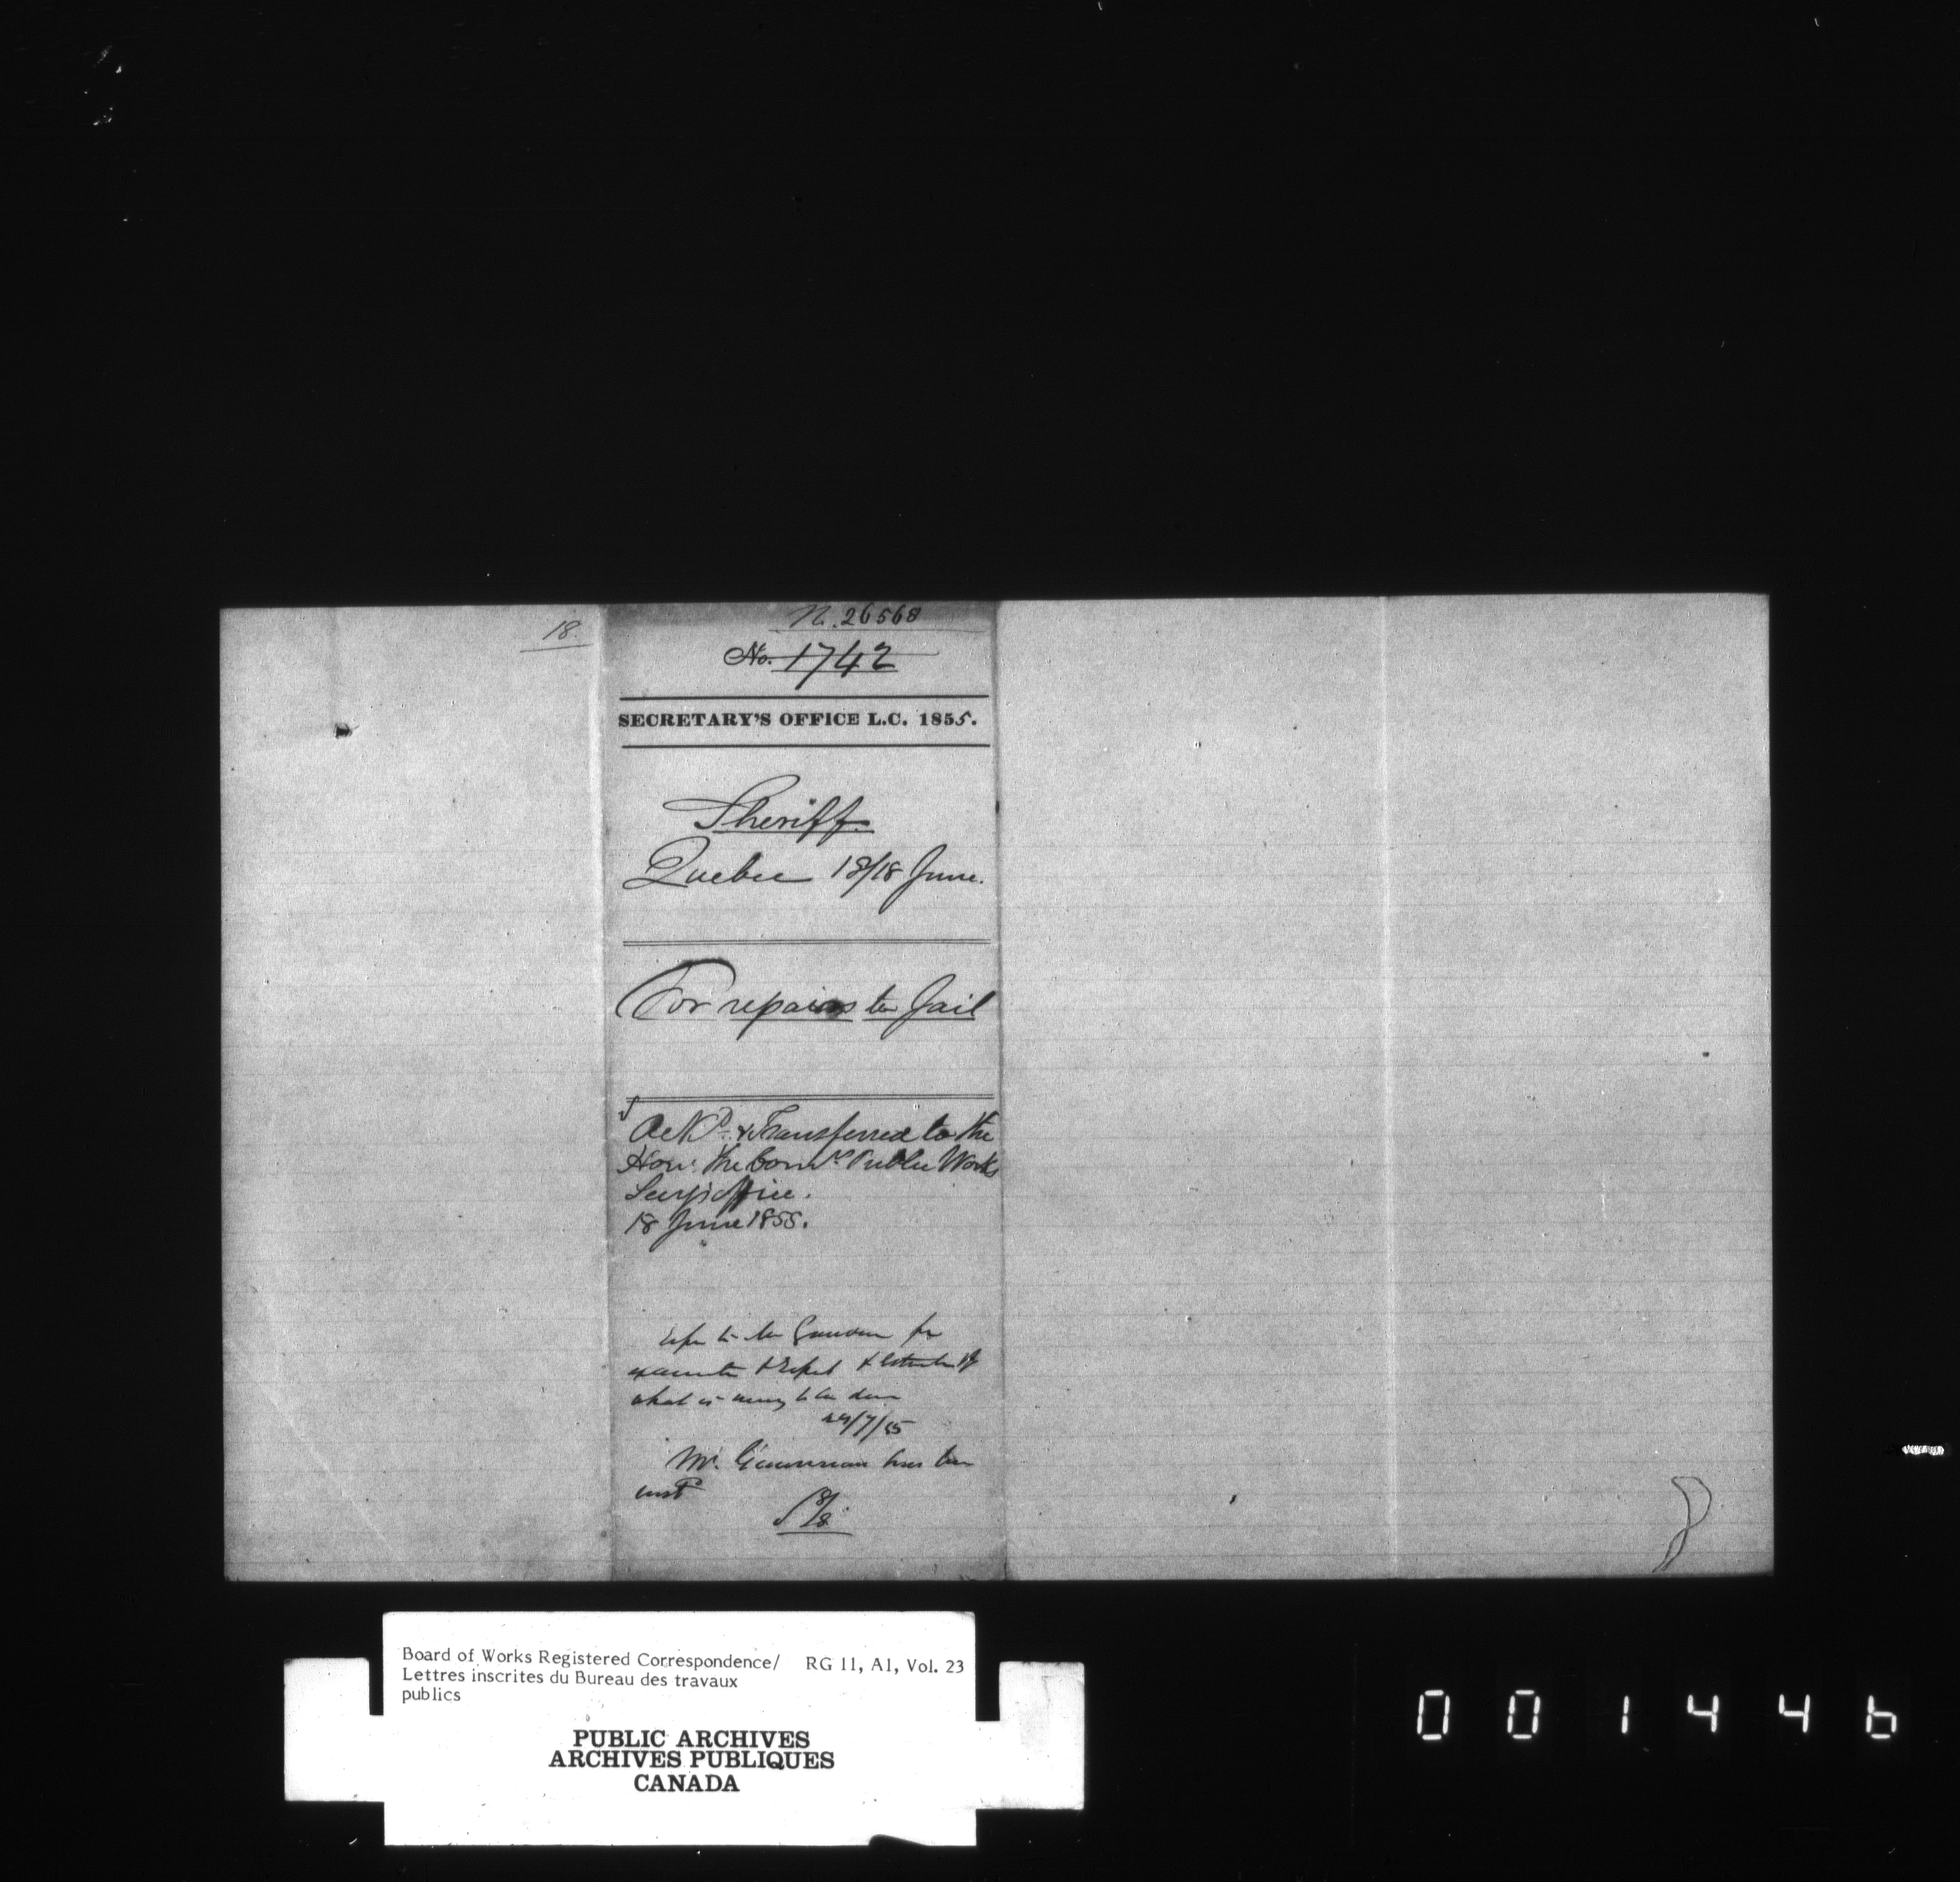 18.
N. 26568
No. 1742
SECRETARY'S OFFICE L.C. 1855.
Sheriff
Quebec 18/18 June.
For repairs to Jail
Ack.d & Transferred to the
Hon: the Comrs Public Works
Secy's office.
18 June 1855.
for
what is to be done
/7/55
Mr. has been
8/8
Board of Works Registered Correspondence/ RG 11, A1, Vol. 23
Lettres inscrites du Bureau des travaux
publics
PUBLIC ARCHIVES
ARCHIVES PUBLIQUES
CANADA
001446